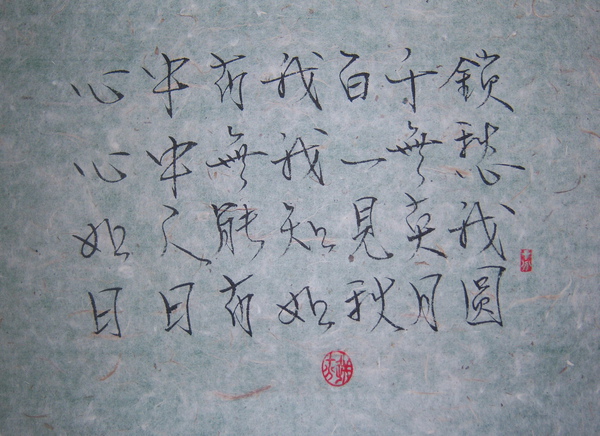 心中有我百千鎖
心中無我一無愁
如人能知見真我
日日有如秋月圓